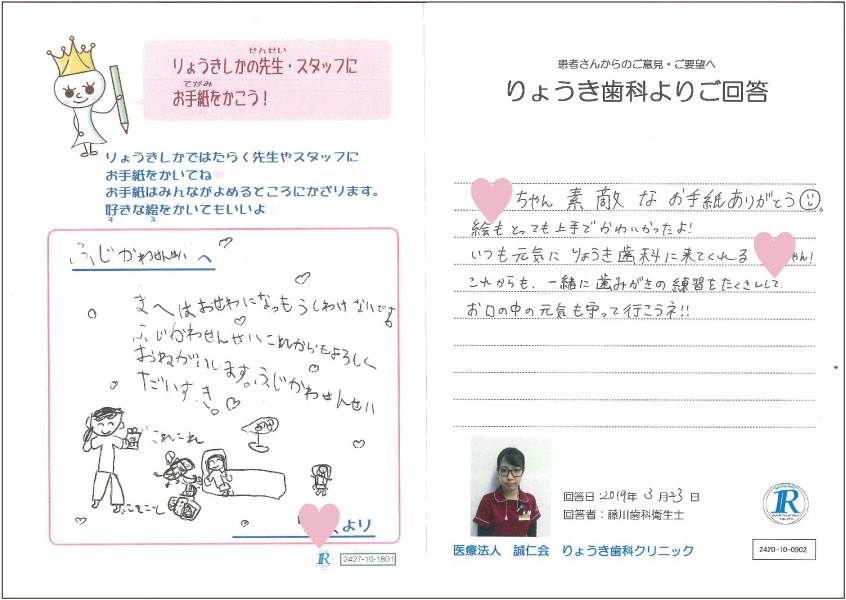 りょうきしかの先生・スタッフに
せんせい
お手紙をかこう！
てがみ
りょうきしかではたらく先生やスタッフに
お手紙をかいてね
お手紙はみんながよめるところにかざります。
好きな絵をかいてもいいよ
す え
ふじかわせんせい へ
まえはおせわになっもうしわけないです。
ふじかわせんせいこれからもよろしく
おねがいします。ふじかわせんせい
だいすき。
これこれ
より
R
2427-10-1801
患者さんからのご意見・ご要望へ
りょうき歯科よりご回答
ちゃん 素敵な お手紙ありがとう。
絵もとっても上手でかわいかったよ!
いつも元気に りょうき歯科に来てくれる ゃん!
これからも、一緒に歯みがきの練習をたくさんして
お口の中の元気も守って行こうネ!!
回答日:2019年 3月23日
回答者:藤川歯科衛生士
R
医療法人 誠仁会 りょうき歯科クリニック
2420-10-0902